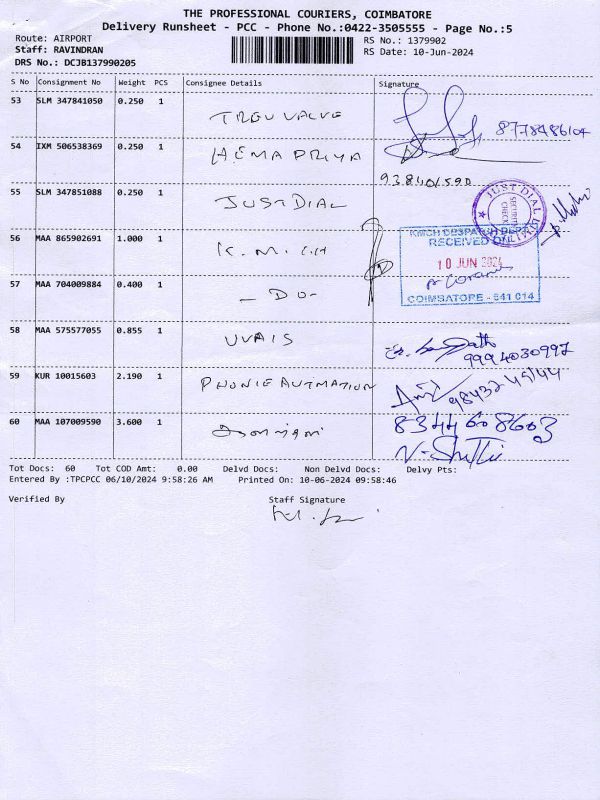 THE PROFESSIONAL COURIERS, COIMBATORE
Delivery Runsheet - PCC - Phone No.:0422-3505555 - Page No.:5
Route: AIRPORT
RS No.: 1379902
Staff: RAVINDRAN
RS Date: 10-Jun-2024
DRS No.: DCJB137990205
S No Consignment No Weight PCS Consignee Details Signature
53 SLM 347841050 0.250 1 TREU VALVE
54 IXM 506538369 0.250 1 HEMA PRIYA
55 SLM 347851088 0.250 1 JUST DIAL
JUST DIAL
SECURITY CHECK
56 MAA 865902691 1.000 1 K.M.C.H
KMCH DESPATCH DEPT.
RECEIVED ONLY
10 JUN 2024
COIMBATORE - 641 014
57 MAA 704009884 0.400 1 - DO -
58 MAA 575577055 0.855 1 UVAIS
9994030997
59 KUR 10015603 2.190 1 PHONIE AUTMATION
60 MAA 107009590 3.600 1
8344608603
Tot Docs: 60 Tot COD Amt: 0.00 Delvd Docs: Non Delvd Docs: Delvy Pts:
Entered By :TPCPCC 06/10/2024 9:58:26 AM Printed On: 10-06-2024 09:58:46
Verified By Staff Signature